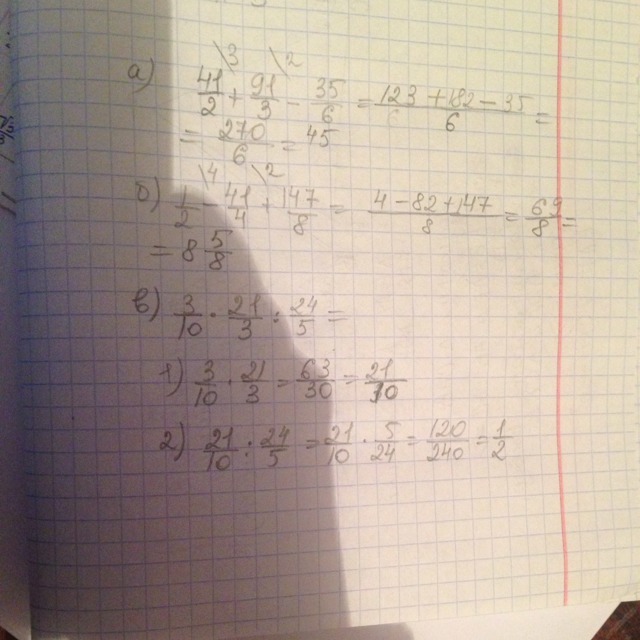 \3 \2
а) 41/2 + 91/3 - 35/6 = 123 + 182 - 35/6 =
= 270/6 = 45
\4 \2
б) 1/2 - 41/4 + 147/8 = 4 - 82 + 147/8 = 69/8 =
= 8 5/8
в) 3/10 · 21/3 : 24/5 =
1) 3/10 · 21/3 = 63/30 = 21/10
2) 21/10 : 24/5 = 21/10 · 5/24 = 120/240 = 1/2